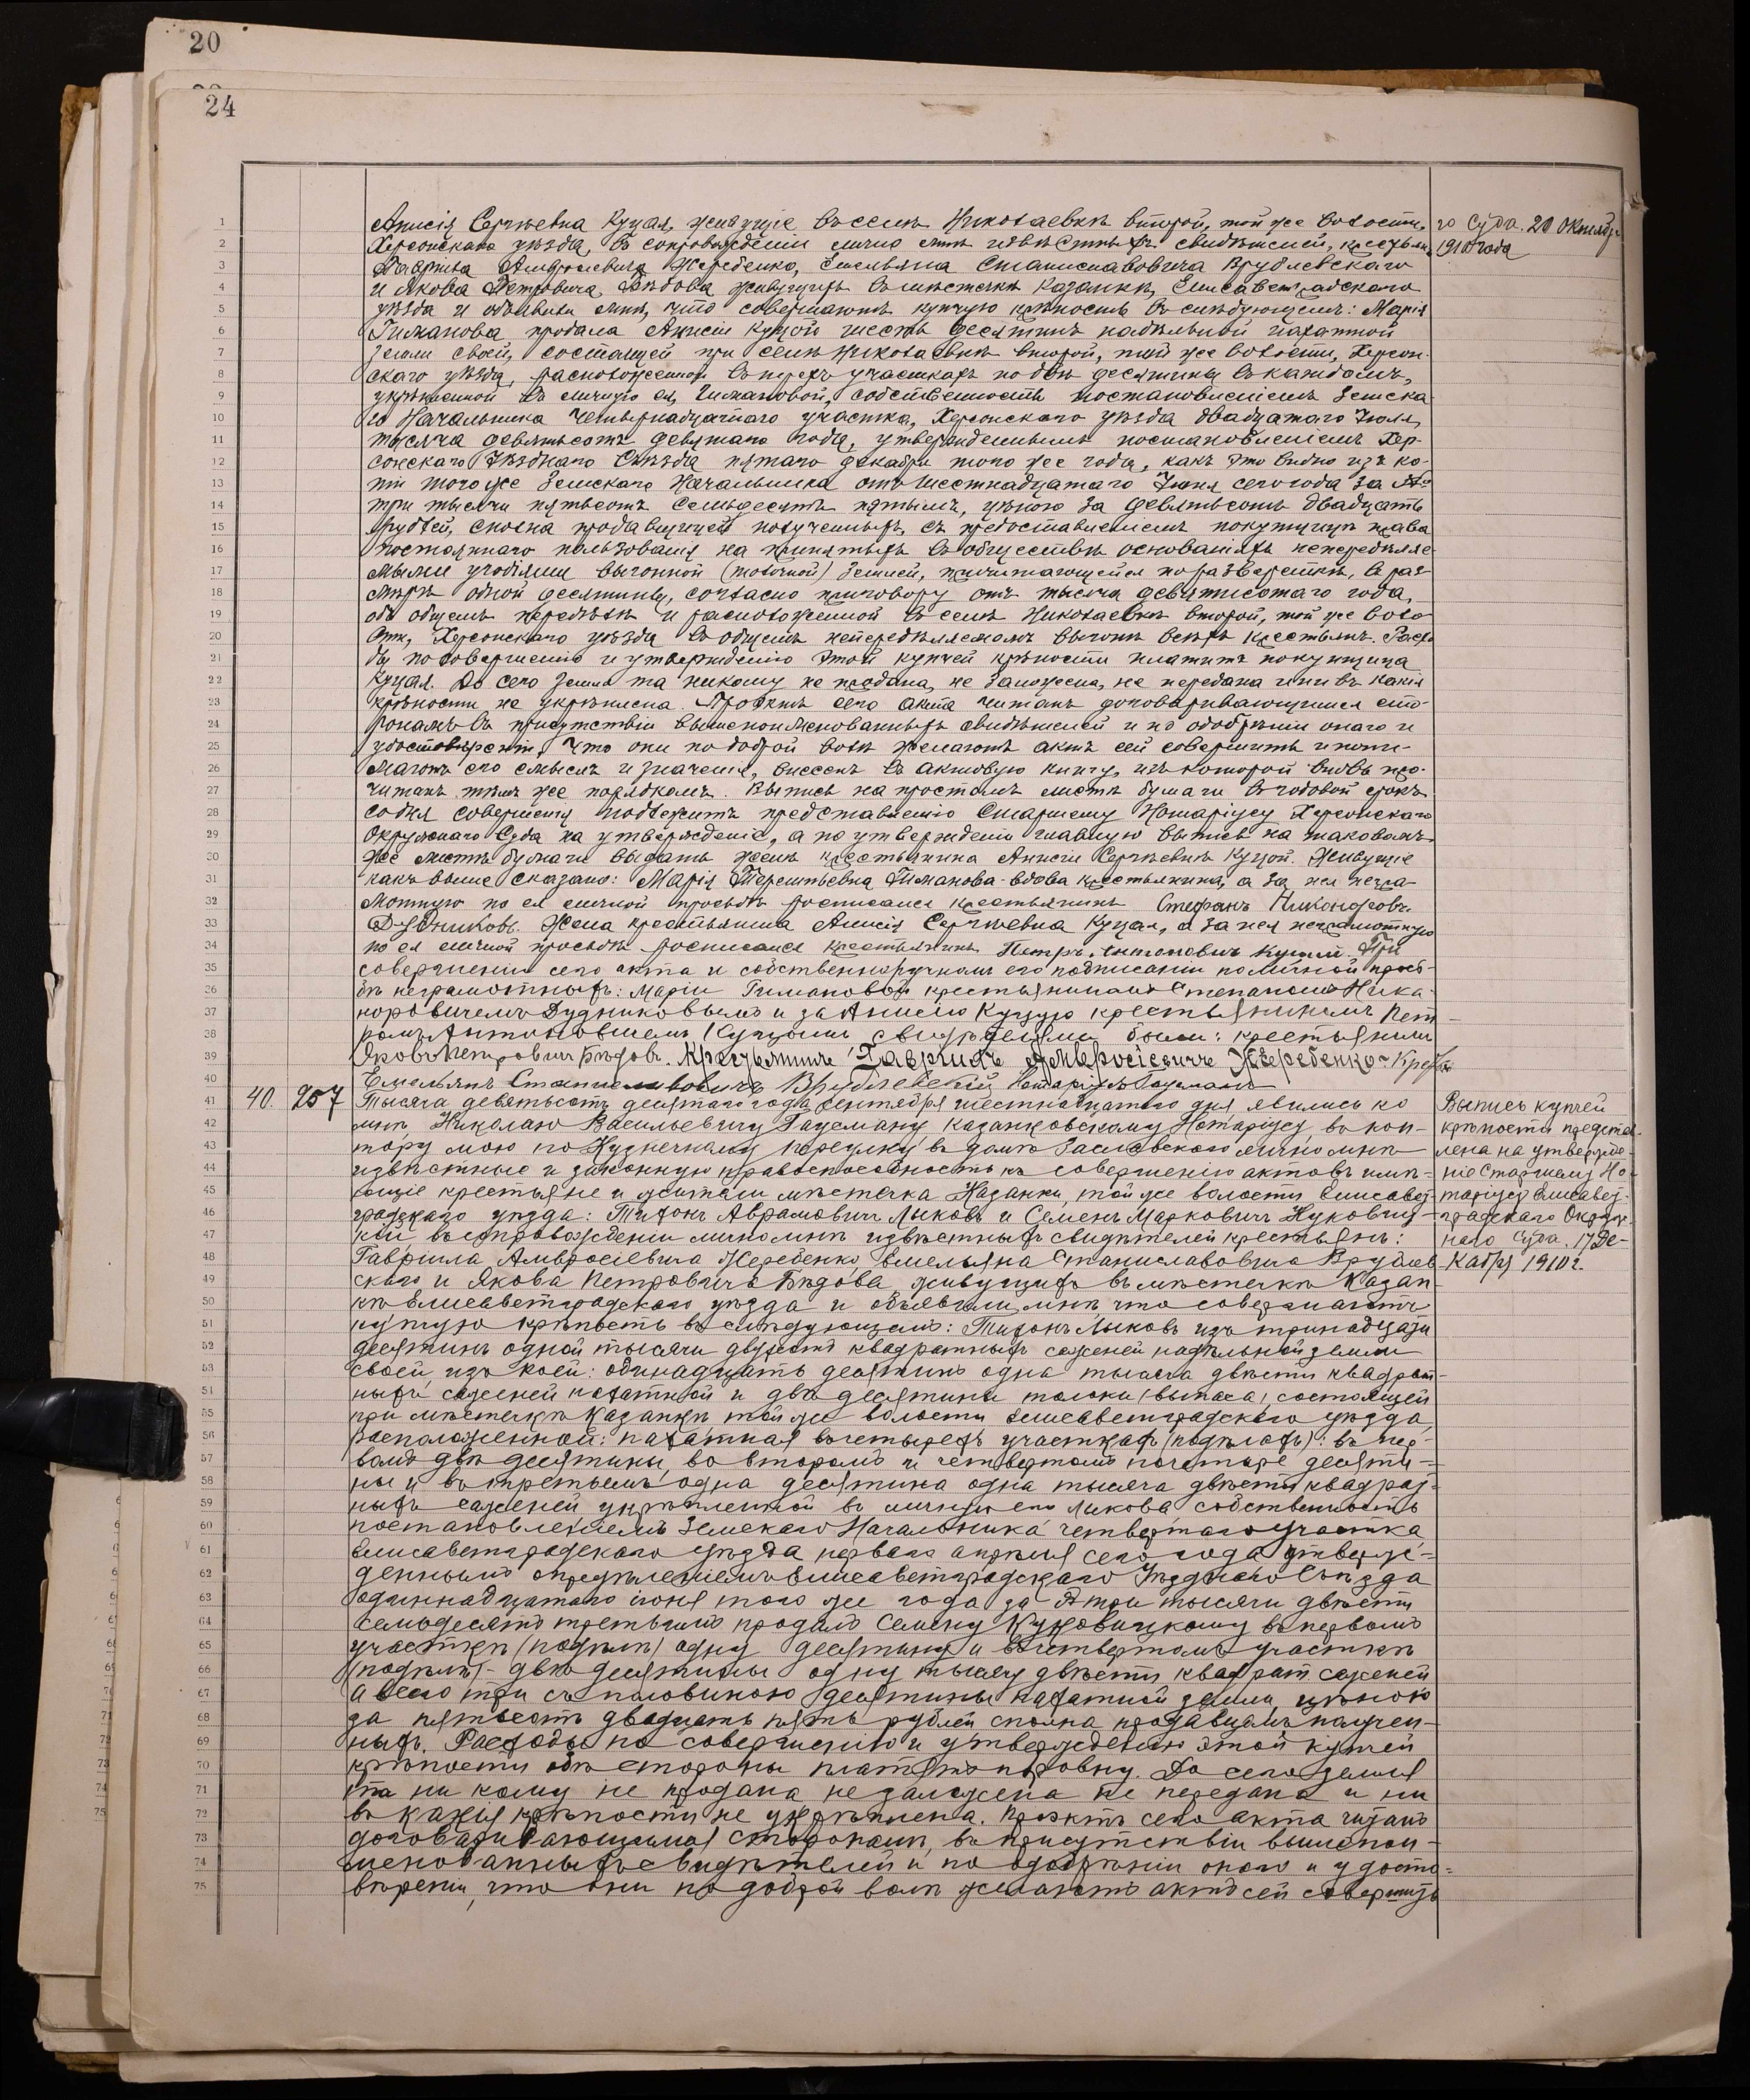 20
24
Анисія Сергѣевна Куцая, живущіе въ селѣ Николаевкѣ второй, той же волости,
Херсонскаго уѣзда, въ сопровожденіи лично мнѣ извѣстныхъ свидѣтелей, крестьянъ
Гавріила Амвросіевича Жеребенко, Емельяна Станиславовича Врублевскаго
и Якова Петровича Бѣдова живущихъ въ мѣстечкѣ Казанкѣ, Елисаветградскаго
уѣзда и объявили мнѣ, что совершаютъ купчую крѣпость въ слѣдующемъ: Марія
Гиманова продала Анисіи Куцой шесть десятинъ надѣльной пахатной
земли своей, состоящей при селѣ Николаевкѣ второй, той же волости, Херсон-
скаго уѣзда, расположенной въ трехъ участкахъ по двѣ десятины въ каждомъ,
укрѣпленной въ личную ея, Гимановой, собственность постановленіемъ Земска
го Начальника четырнадцатаго участка, Херсонскаго уѣзда двадцатаго Іюля,
тысяча девятьсотъ девятаго года, утвержденнымъ постановленіемъ Хер-
сонскаго Уѣзднаго Съѣзда пятаго декабря того же года, какъ это видно изъ ко-
піи того же Земскаго Начальника отъ шестнадцатаго Іюня сего года за №
три тысячи пятьсотъ семьдесятъ пятымъ, цѣною за девятьсотъ двадцать
рублей, сполна продавщицей полученныхъ, съ предоставленіемъ покупщицѣ права
постояннаго пользованія на принятыхъ въ обществѣ основаніяхъ непередѣляе
мыми угодіями выгонной (толочной) землей, причитающейся по разверсткѣ, въ раз-
мѣрѣ одной десятины, согласно приговору отъ тысяча девятисотаго года,
объ общемъ передѣлѣ и расположенной въ селѣ Николаевкѣ второй, той же воло
сти, Херсонскаго уѣзда въ общемъ непередѣляемомъ выгонѣ всѣхъ крестьянъ. Расхо
ды по совершенію и утвержденію этой купчей крѣпости платитъ покупщица
Куцая. До сего земля та никому не продана, не заложена, не передана и ни въ какія
крѣпости не укрѣплена. Проектъ сего акта читанъ договаривающимся сто-
ронамъ въ присутствіи вышепоименованныхъ свидѣтелей и по одобреніи онаго и
удостовѣреніи, что они по доброй волѣ желаютъ актъ сей совершить и пони-
маютъ его смыслъ и значеніе, внесенъ въ актовую книгу, изъ которой вновь про-
читанъ тѣмъ же порядкомъ. Выпись на простомъ листѣ бумаги въ годовой срокъ
со дня совершенія подлежитъ представленію Старшему Нотаріусу Херсонскаго
Окружнаго Суда на утвержденіе, а по утвержденіи главную выпись на таковомъ
же листѣ бумаги выдать женѣ крестьянина Анисіи Сергѣевнѣ Куцой. Живущіе
какъ выше сказано: Марія Терентьевна Гиманова - вдова крестьянина, а за нея негра-
мотную по ея личной просьбѣ росписался крестьянинъ Стефанъ Никоноровъ
Дудниковъ. Жена крестьянина Анисія Сергѣевна Куцая, а за нея неграмотную
по ея личной просьбѣ росписался крестьянинъ Петръ Антоновичъ Куцый. При
совершеніи сего акта и собственноручномъ его подписаніи по личной прось-
бѣ неграмотныхъ: Маріи Гимановой крестьяниномъ Степаномъ Ника-
норовичемъ Дудниковымъ и за Анисію Куцую крестьяниномъ Пет-
ромъ Антоновичемъ Куцымъ свидѣтелями были: крестьянинъ
Яковъ Петровичъ Бѣдовъ. Крестьянинъ Гавріилъ Амвросіевичъ Жеребенко
Емельянъ Станиславовичъ Врублевскій Нотаріусъ Гауеманъ
40. 257 Тысяча девятьсотъ десятаго года сентября шестнадцатаго дня, явились ко
мнѣ Николаю Васильевичу Гауеману Казанковскому Нотаріусу, въ кон-
тору мою по Кузнечному переулку въ домѣ Заславскаго лично мнѣ
извѣстные и законную правоспособность къ совершенію актовъ имѣ-
ющіе крестьяне и жители мѣстечка Казанки, той же волости Елисавет-
градскаго уѣзда: Тихонъ Аврамовичъ Лыковъ и Семенъ Марковичъ Куковиц-
кій въ сопровожденіи лично мнѣ извѣстныхъ свидѣтелей крестьянъ:
Гавріила Амвросіевича Жеребенко, Емельяна Станиславовича Врублев
скаго и Якова Петровича Бѣдова, живущихъ въ мѣстечкѣ Казан
кѣ Елисаветградскаго уѣзда и объявили мнѣ, что совершаютъ
купчую крѣпость въ слѣдующемъ: Тихонъ Лыковъ изъ тринадцати
десятинъ одной тысячи двухсотъ квадратныхъ саженей надѣльной земли
своей, изъ коей: одинадцать десятинъ одна тысяча двѣсти квадрат-
ныхъ саженей пахатной и двѣ десятины толоки (выпаса), состоящей
при мѣстечкѣ Казанкѣ, той же волости Елисаветградскаго уѣзда,
расположенной: пахатная въ четырехъ участкахъ (подѣлахъ): въ пер-
вомъ двѣ десятины, во второмъ и четвертомъ по четыре десяти-
ны и въ третьемъ одна десятина одна тысяча двѣсти квадрат-
ныхъ саженей укрѣпленной въ личную его Лыкова собственность
постановленіемъ Земскаго Начальника четвертаго участка
Елисаветградскаго уѣзда перваго апрѣля сего года утверж-
деннымъ опредѣленіемъ Елисаветградскаго Уѣзднаго Съѣзда
одиннадцатаго іюня того же года за № три тысячи двѣсти
семьдесятъ третьимъ продалъ Семену Куковицкому въ первомъ
участкѣ (подѣлѣ) одну десятину и въ четвертомъ участкѣ
(подѣлѣ) - двѣ десятины одну тысячу двѣсти квадрат. саженей
а всего три съ половиною десятины пахатной земли, цѣною
за пятьсотъ двадцать пять рублей сполна продавцемъ получен-
ныхъ. Расходы по совершенію и утвержденію этой купчей
крѣпости обѣ стороны платятъ поровну. До сего земля
та ни кому не продана не заложена не передана и ни
въ какія крѣпости не укрѣплена. Проэктъ сего акта читанъ
договаривающимся сторонамъ, въ присутствіи вышепои-
менованныхъ свидѣтелей и по одобреніи онаго и удосто-
вѣреніи, что они по доброй волѣ желаютъ актъ сей совершить
го Суда. 20 Октября
1910 года
Выпись купчей
крѣпости представ-
лена на утвержде-
ніе Старшему Но-
таріусу Елисавет-
градскаго Окруж-
наго Суда. 17 Де-
кабря 1910 г.